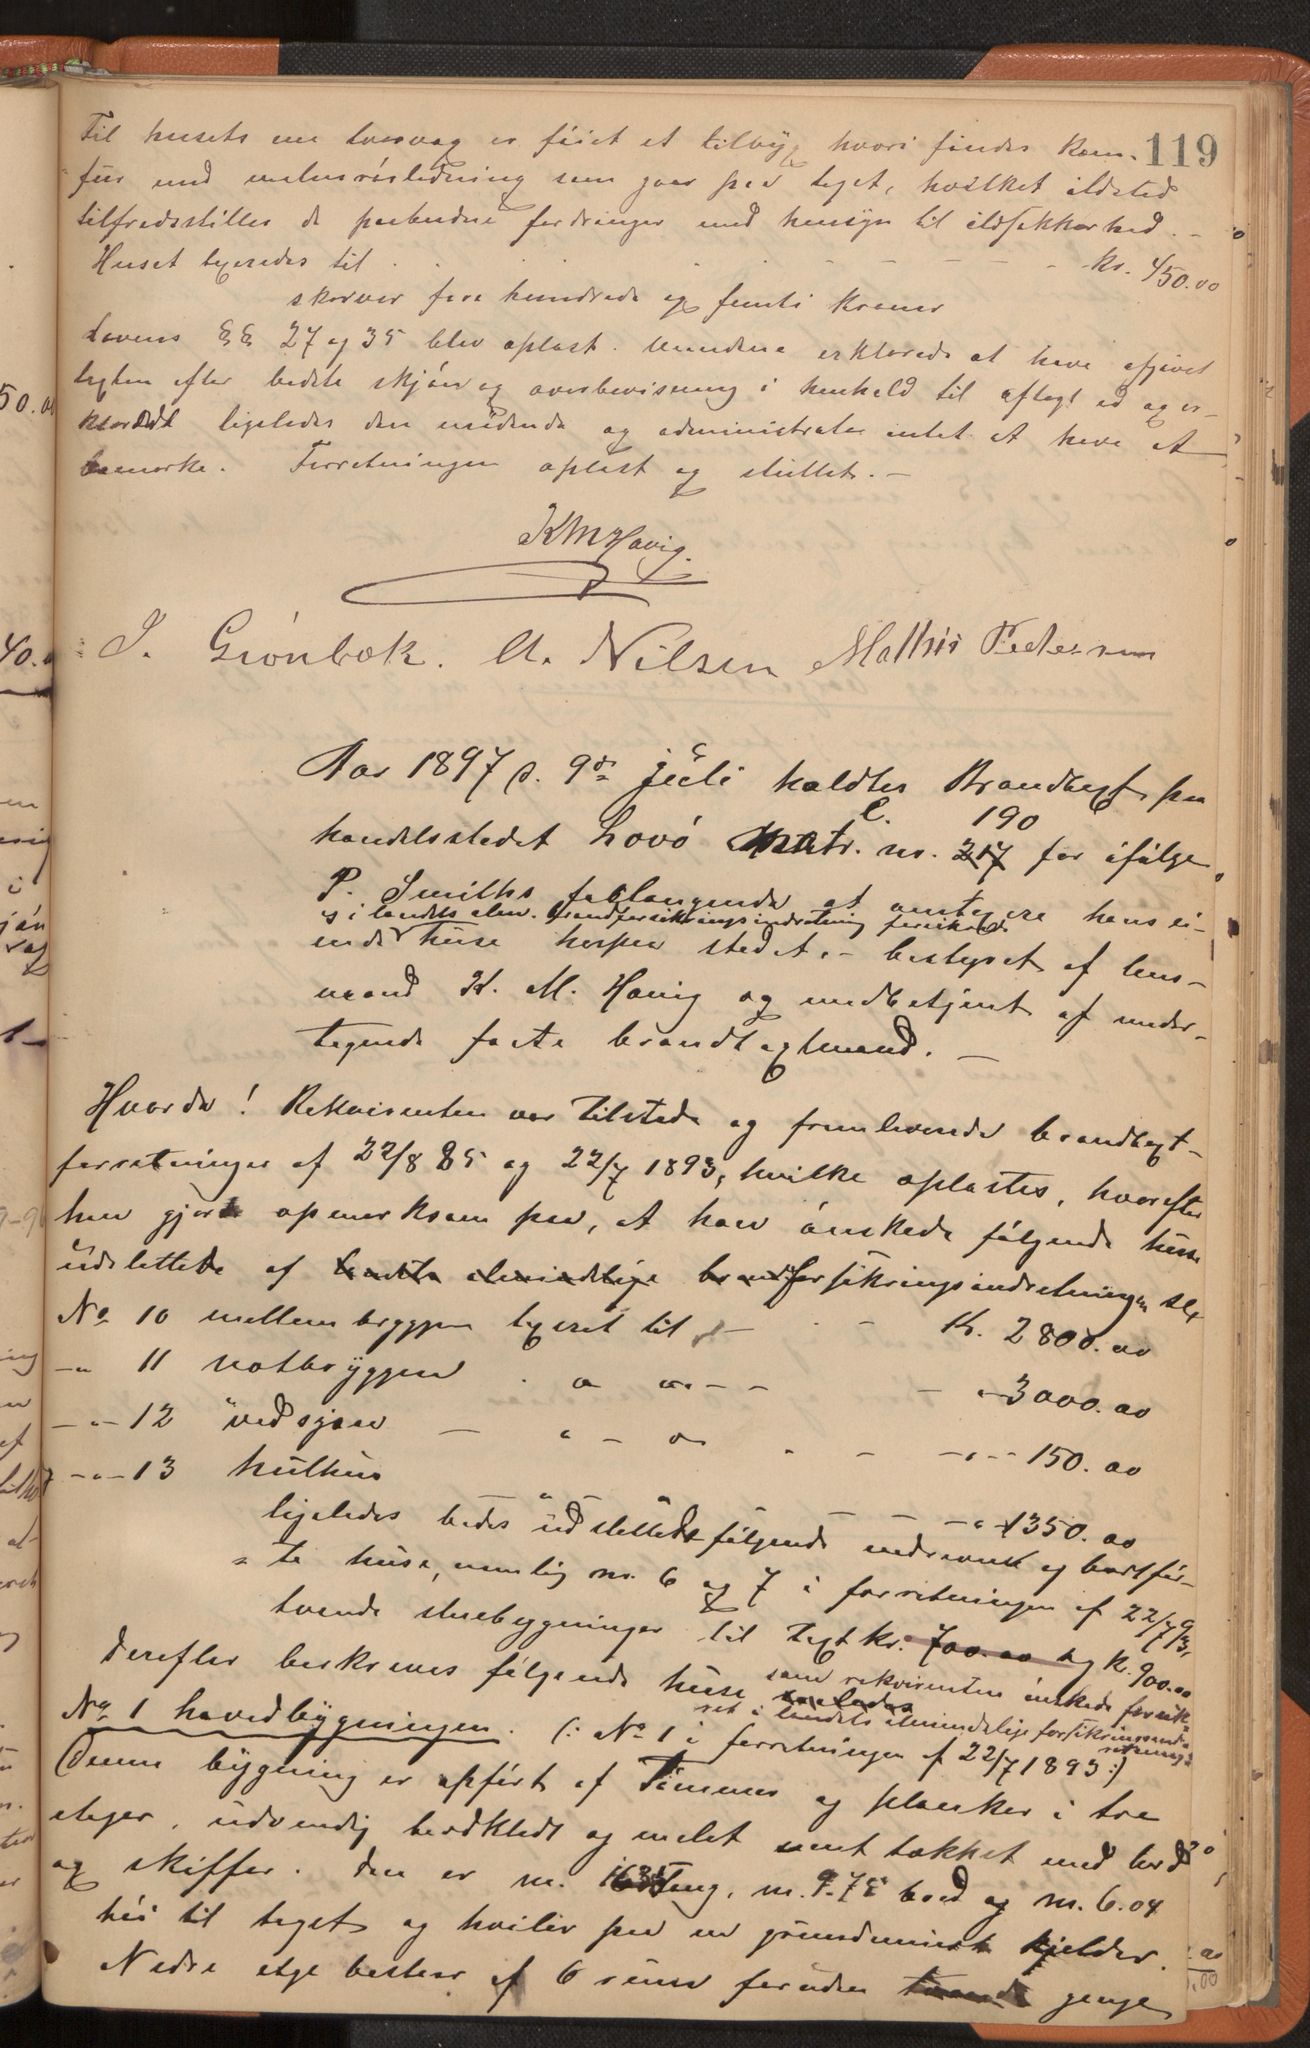 119
Til husets ene tversvæg er føiet et tilbyg hvori findes kom-
fur med malmrørsledning som gaar paa taget, hvilket ildsted
tilfredsstiller de paabudne fordringer med hensyn til ildsikkerhed. -
Huset taxeredes til . . . . . kr. 450.00
skriver fire hundrede og femti kroner
Lovens §§ 27 og 35 blev oplæst. Mændene erklærede at have afgivet
taxten efter bedste skjøn og overbevisning i henhold til aflagt ed og er-
klærede ligeledes den midende og administrator intet at have at
bemærke. Forretningen oplæst og sluttet. -
K M Havig.
I. Grønbæk. A. Nilsen Mathis Pedersen
Aar 1897 d. 9de juli holdtes Brandtaxt paa
handelsstedet Lovø matr. l. nr. 217 190 for ifølge
P. Smiths forlangende at omtaxere hans ei-
og i landets alm. brandforsikringsindretning forsikrede
ende huse herpaa stedet. - bestyret af lens-
mand K. M. Havig og medbetjent af under-
tegnede faste brandtaxtmænd. -
Hvorda! Rekvirenten var tilstede og fremleverede brandtaxt-
forretninger af 22/8 85 og 22/7 1893, hvilke oplæstes, hvorefter
han gjorde opmærksom paa, at han ønskede følgende huse
udslettede af landets almindelige brandforsikringsindretningen
No 10 mellembryggen taxeret til - - - K. 2800.00
-"- 11 notbryggen . " " - - - " 3000.00
-"- 12 vedsjaa - " - " . - -"- 150.00
-"- 13 kulhus - " - - - - -"- 1350.00
ligeledes bedes udslettede følgende nedrevne og bortfør-
te huse, nemlig nr. 6 og 7 i forretningen af 22/7 93,
tvende stuebygninger til taxt kr. 700.00 og kr. 900.00
Derefter beskreves følgende huse saaledes som rekvirenten ønskede forsik-
ret i landets almindelige forsikringsind-
retning:
No 1 hovedbygningen. (: No 1 i forretningen af 22/7 1893 :)
Denne bygning er opført af Tømmer og planker i tre
etager, udvendig bordklædt og malet samt tækket med bord
og skiffer. Den er m. lang, m. 9.75 bred og m. 6.04
høi til taget og hviler paa en grundmuret kjelder.
Nedre etage bestaar af 6 rum foruden tvende gange